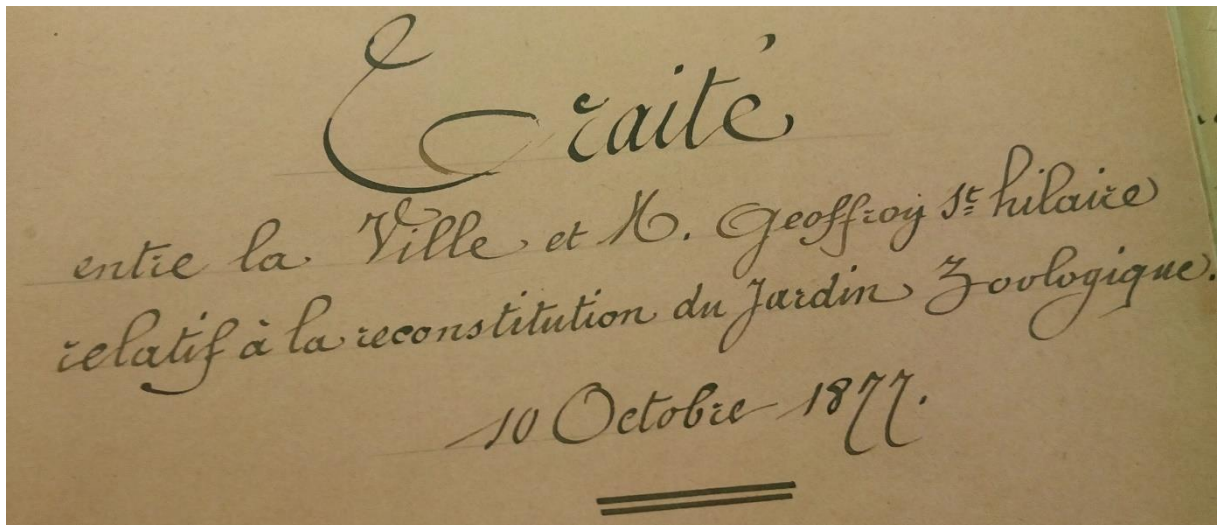 Traité
entre la Ville et M. Geoffroy St hilaire
relatif à la reconstitution du Jardin Zoologique.
10 Octobre 1877.